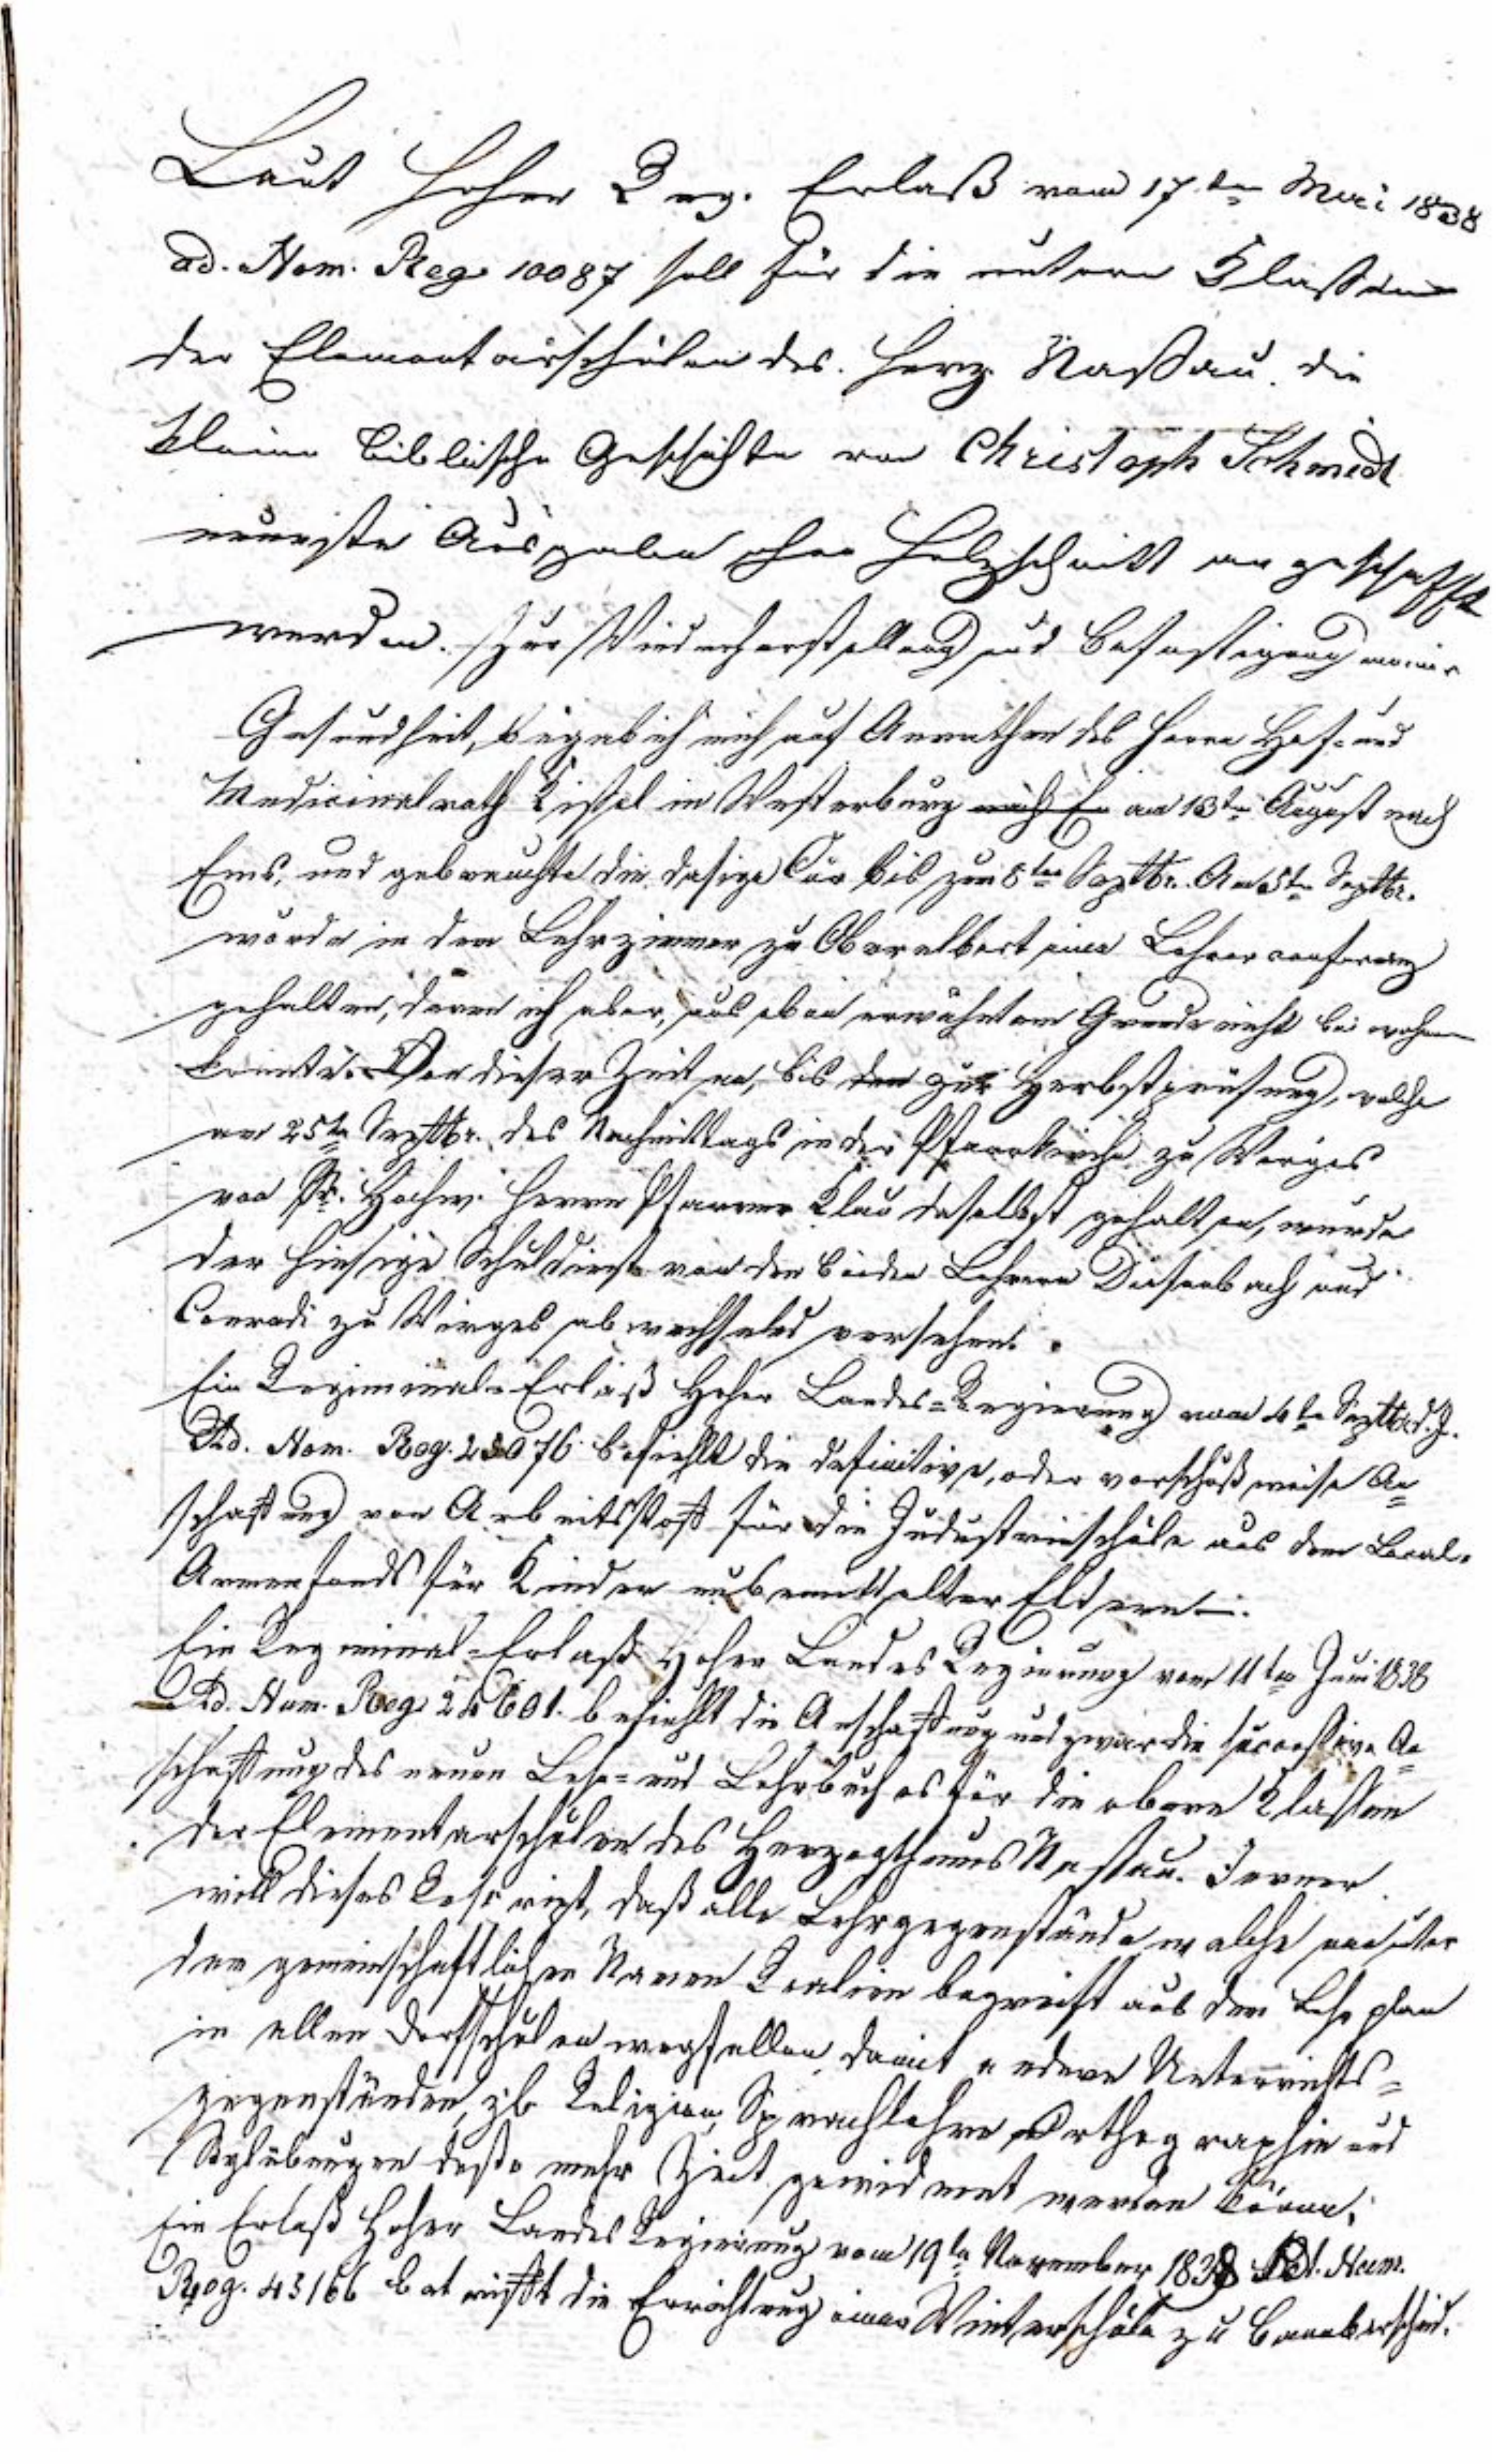 Laut hoher Reg. Erlaß vom 17ten Mai 1838
ad. Nom. Reg. 10087 soll für die untern Klassen
der Elementarschulen des Herz. Nassau die
kleine biblische Geschichte von Christoph Schmidt
neueste Ausgabe ohne Holzschnitt angeschafft
werden. Zur Wiederherstellung und Befestigung meiner
Gesundheit, begab ich mich auf Anrathen des Herrn Hof- und
Medicinalrath Kissel in Westerburg nach Em am 13ten August nach
Ems, und gebrauchte die dasige Cur bis zum 8ten Septbr. Am 5ten Septbr.
wurde in dem Lehrzimmer zu Oberelbert eine Lehrerconferenz
gehalten, deren ich aber, aus eben erwähntem Grunde nicht beiwohnen
konnte. Von dieser Zeit an, bis den zur Herbstprüfung, welche
am 25ten Septbr. des Nachmittags in der Pfarrkirche zu Wirges
von Sr. Hochw. Herrn Pfarrer Klau daselbst gehalten, wurde
der hiesige Schuldienst von den beiden Lehrern Diefenbach und
Conradi zu Wirges abwechselnd versehen.
Ein Regiminal-Erlaß Hoher Landes-Regierung vom 4ten Septbr d. J.
Ad. Nom. Reg. 25076 befiehlt die definitive, oder vorschußweise An=
schaffung von Arbeitsstoff für die Industrieschule aus dem Local-
Armenfonds für Kinder unbemittelter Eltern.
Ein Regiminal-Erlaß Hoher Landes Regierung vom 11ten Juni 1838
Ad. Num. Reg. 24601. befiehlt die Anschaffung und zwar die successive An=
schaffung des neuen Lese- und Lehrbuches für die obern Klassen
der Elementarschulen des Herzogthums Nassau. Ferner
will dieses Rescript, daß alle Lehrgegenstände welche man unter
dem gemeinschaftlichen Namen Realien begreift aus dem Lehrplan
in allen Dorfschulen wegfallen damit andern Unterrichts=
gegenständen, zb. Religion, Sprachlehre, Orthographie und
Stylübungen desto mehr Zeit gewidmet werden könne.
Ein Erlaß Hoher Landes Regierung vom 19ten November 1838 Ad. Num.
Reg. 43166 betrifft die Errichtung einer Winterschule zu Bannberscheid.